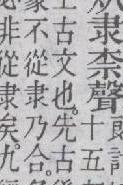 隶柰聲
十五
上古文也。先古
篆不從隶乃合。
必非從隶矣。九